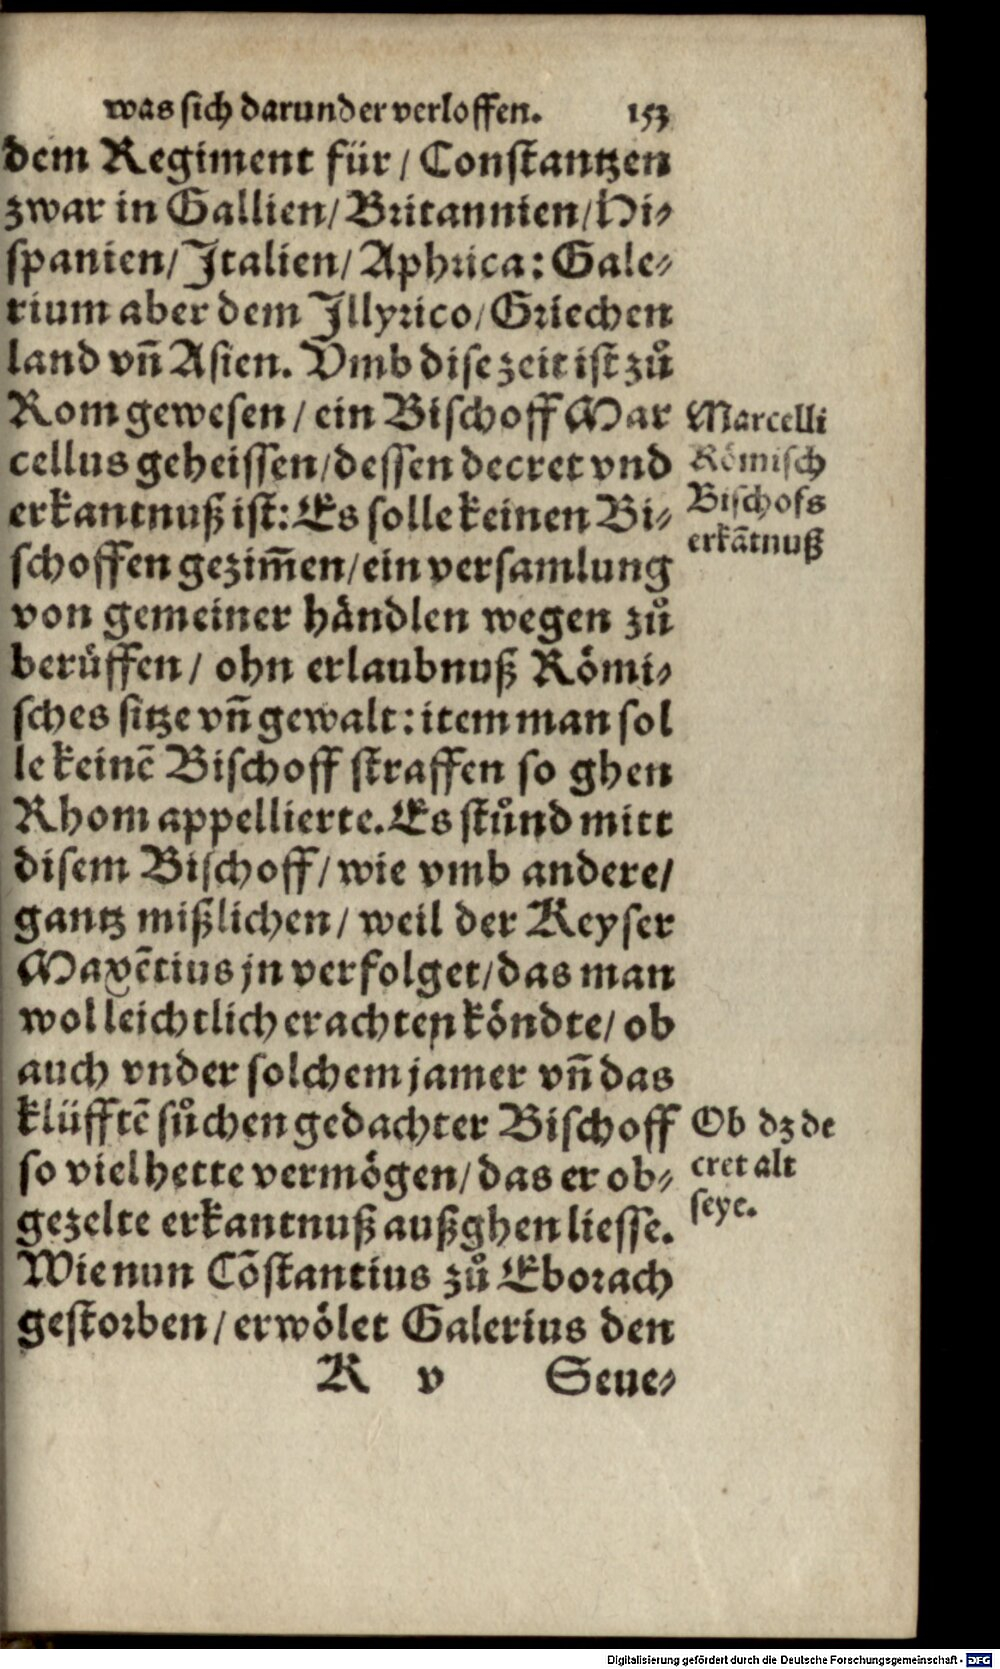 was sich darunder verloffen. 153
dem Regiment für / Constantzen
zwar in Gallien/ Britannien/ Hi⸗
spanien/ Italien/ Aphrica: Gale⸗
rium aber dem Illyrico/ Griechen
land vñ Asien. Vmb dise zeit ist zů
Rom gewesen / ein Bischoff Mar
cellus geheissen/ dessen decret vnd
erkantnuß ist: Es solle keinen Bi⸗
schoffen gezim̃en/ ein versamlung
von gemeiner håndlen wegen zů
berüffen / ohn erlaubnuß Römi⸗
sches sitze vñ gewalt: item man sol
le keinē Bischoff straffen so ghen
Rhom appellierte. Es stůnd mitt
disem Bischoff/ wie vmb andere/
gantz mißlichen / weil der Keyser
Maxētius jn verfolget/ das man
wol leichtlich erachten köndte/ ob
auch vnder solchem jamer vñ das
klüfftē sůchen gedachter Bischoff
so viel hette vermögen/ das er ob⸗
gezelte erkantnuß außghen liesse.
Wie nun Cōstantius zů Eborach
gestorben / erwölet Galerius den
K v Seue⸗
Marcelli
Römisch
Bischofs
erkātnuß
Ob dz de
cret alt
seye.
Digitalisierung gefördert durch die Deutsche Forschungsgemeinschaft - DFG